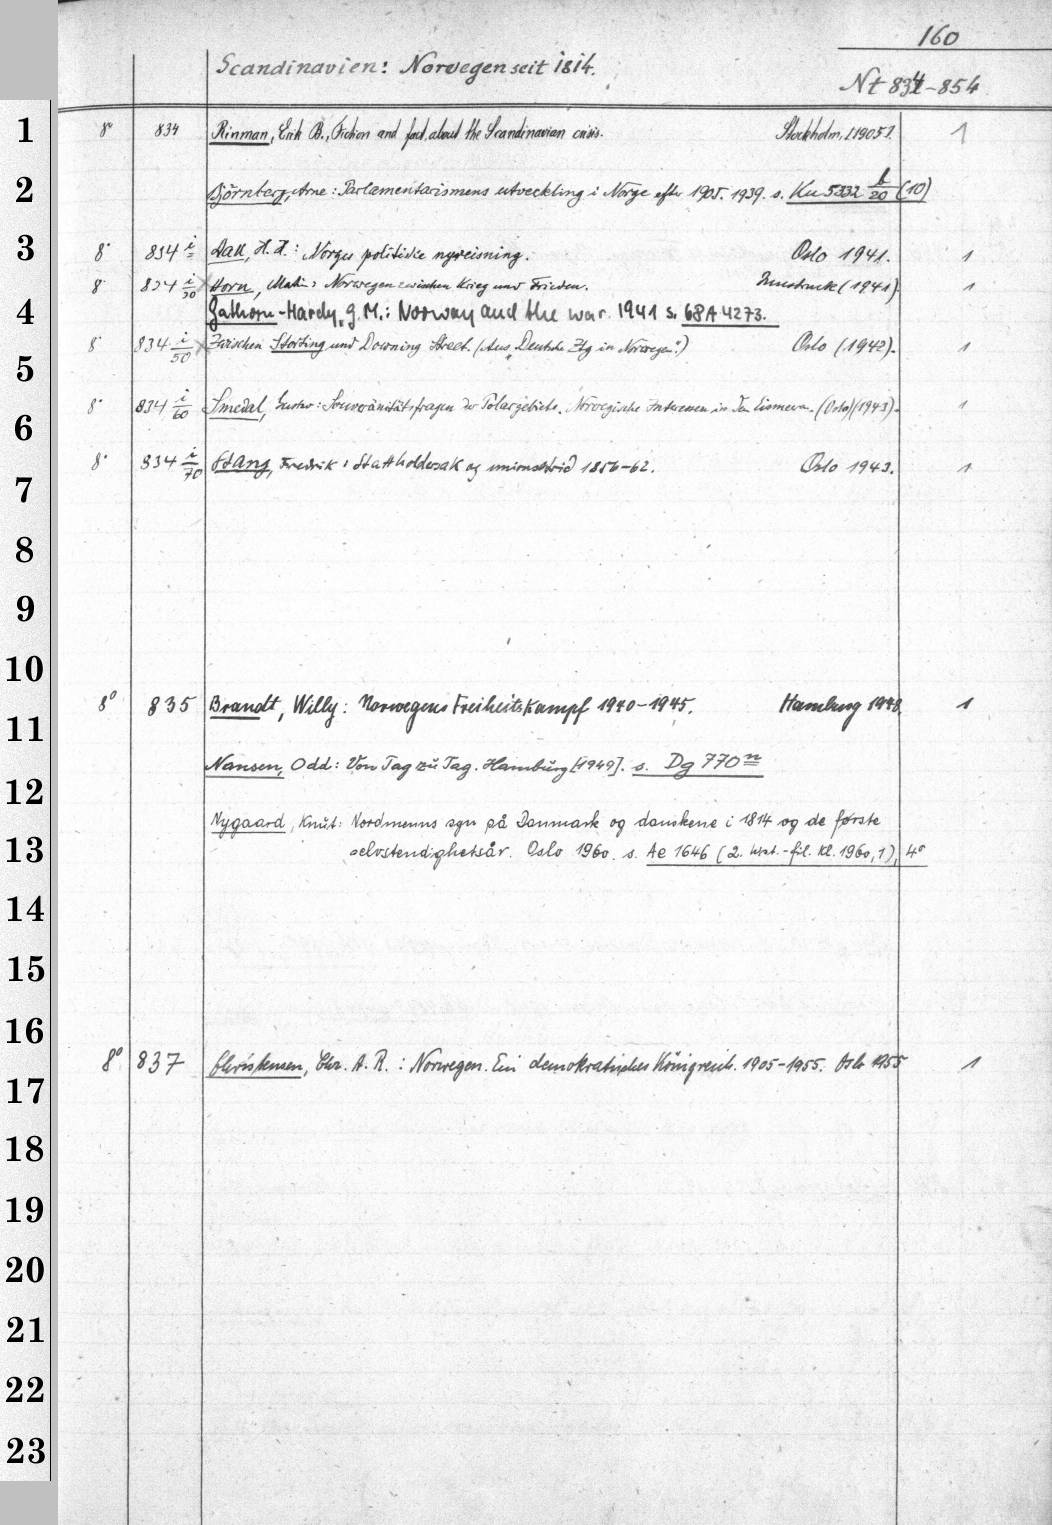 160
Scandinavien: Norwegen seit 1814.
Nt 834-854
1
8° 834 Rinman, Erik B., Fiction and fact about the Scandinavian crisis. Stockholm, [1905]. 1
2
Björnberg, Arne: Parlamentarismens utveckling i Norge efter 1905. 1939. s. Ku 5332 b/20 (10)
3
8° 834 i Dahl, H. F.: Norges politiske nyreisning. Oslo 1941. 1
8° 834 i/30 Horn, Martin: Norwegen zwischen Krieg und Frieden. Innsbruck (1941). 1
4
Gathorn-Hardy, G. M.: Norway and the war. 1941 s. 68 A 4273.
8° 834 i/50 Zwischen Storting und Downing Street. (Aus "Deutsche Ztg in Norwegen".) Oslo (1942). 1
5
8° 834 i/60 Smedal, Gustav: Souveränitätsfragen der Polargebiete. Norwegische Interessen in den Eismeeren. (Oslo) (1943). 1
6
8° 834 i/70 Stang, Fredrik: Stattholdersak og unionsstrid 1856-62. Oslo 1943. 1
7
8
9
10
8° 835 Brandt, Willy: Norwegens Freiheitskampf 1940-1945. Hamburg 1948. 1
11
Nansen, Odd: Von Tag zu Tag. Hamburg [1949]. s. Dg 770 n
12
Nygaard, Knut: Nordmenns syn på Danmark og danskene i 1814 og de første
13
selvstendighetsår. Oslo 1960. s. Ae 1646 (2. hist.-fil. Kl. 1960, 1), 4°
14
15
16
8° 837 Christensen, Chr. A. R.: Norwegen. Ein demokratisches Königreich. 1905-1955. Oslo 1955 1
17
18
19
20
21
22
23